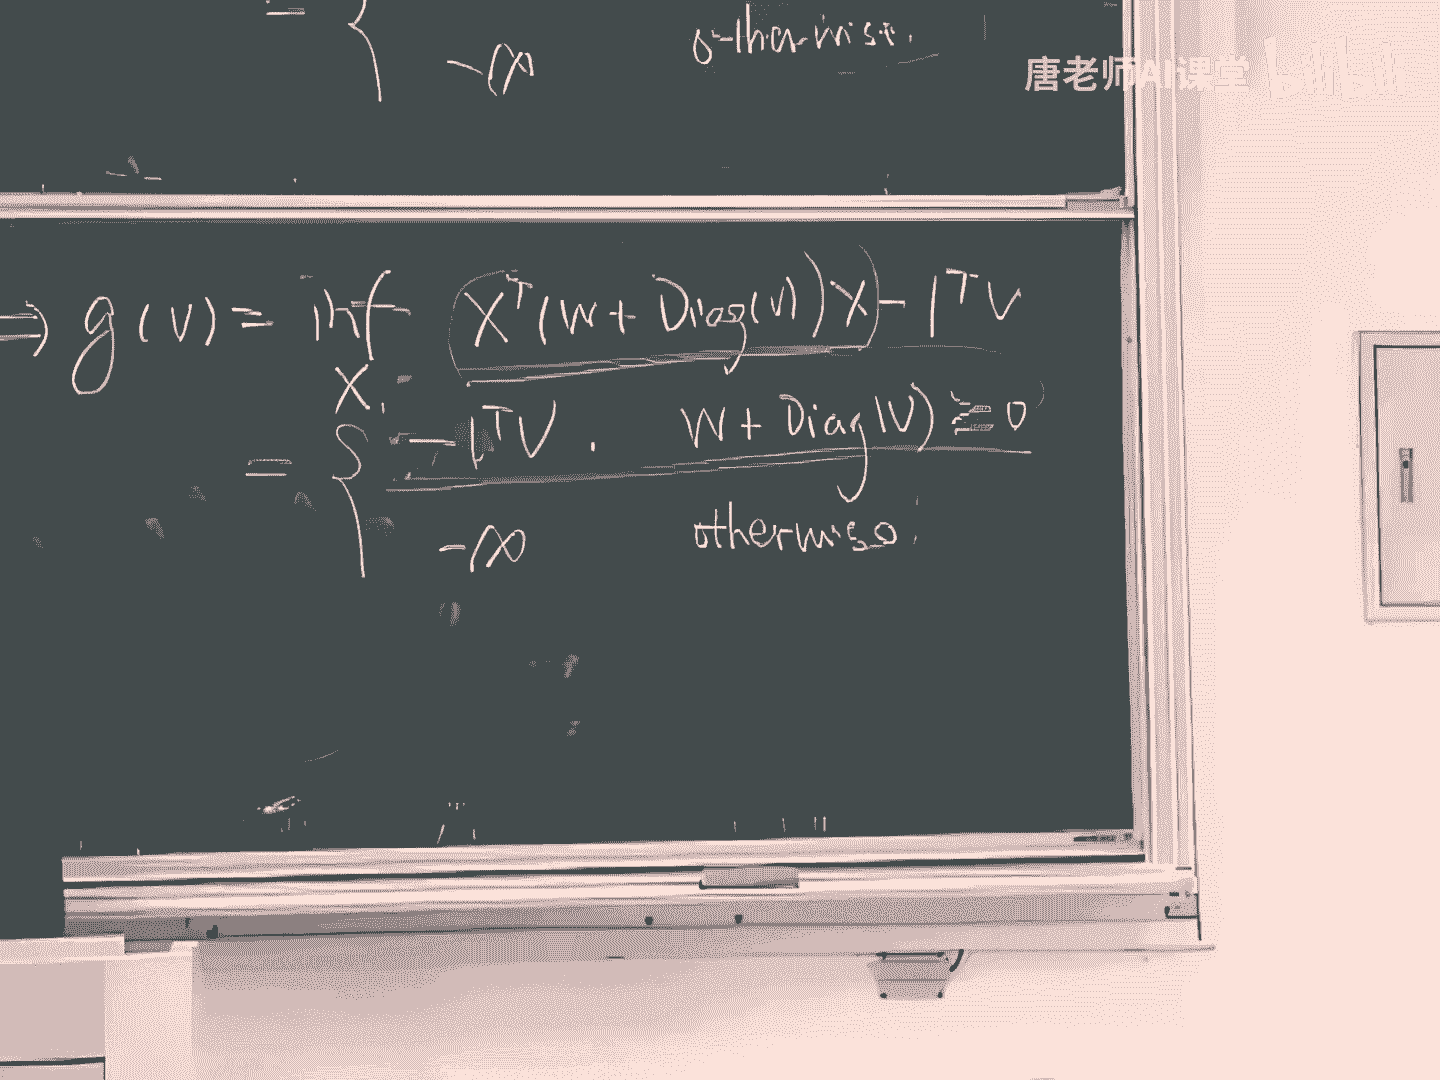 = {
-∞ otherwise.
唐老师AI课堂 bilibili
⇒ g(v) = inf (X^T(W + Diag(v))X) - 1^T v
X.
= { -1^T v . W + Diag(v) ⪰ 0
-∞ otherwise.